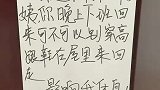 姨你晚上下班回
来可不可以别穿高
跟鞋在屋里来回
走
影响我休息